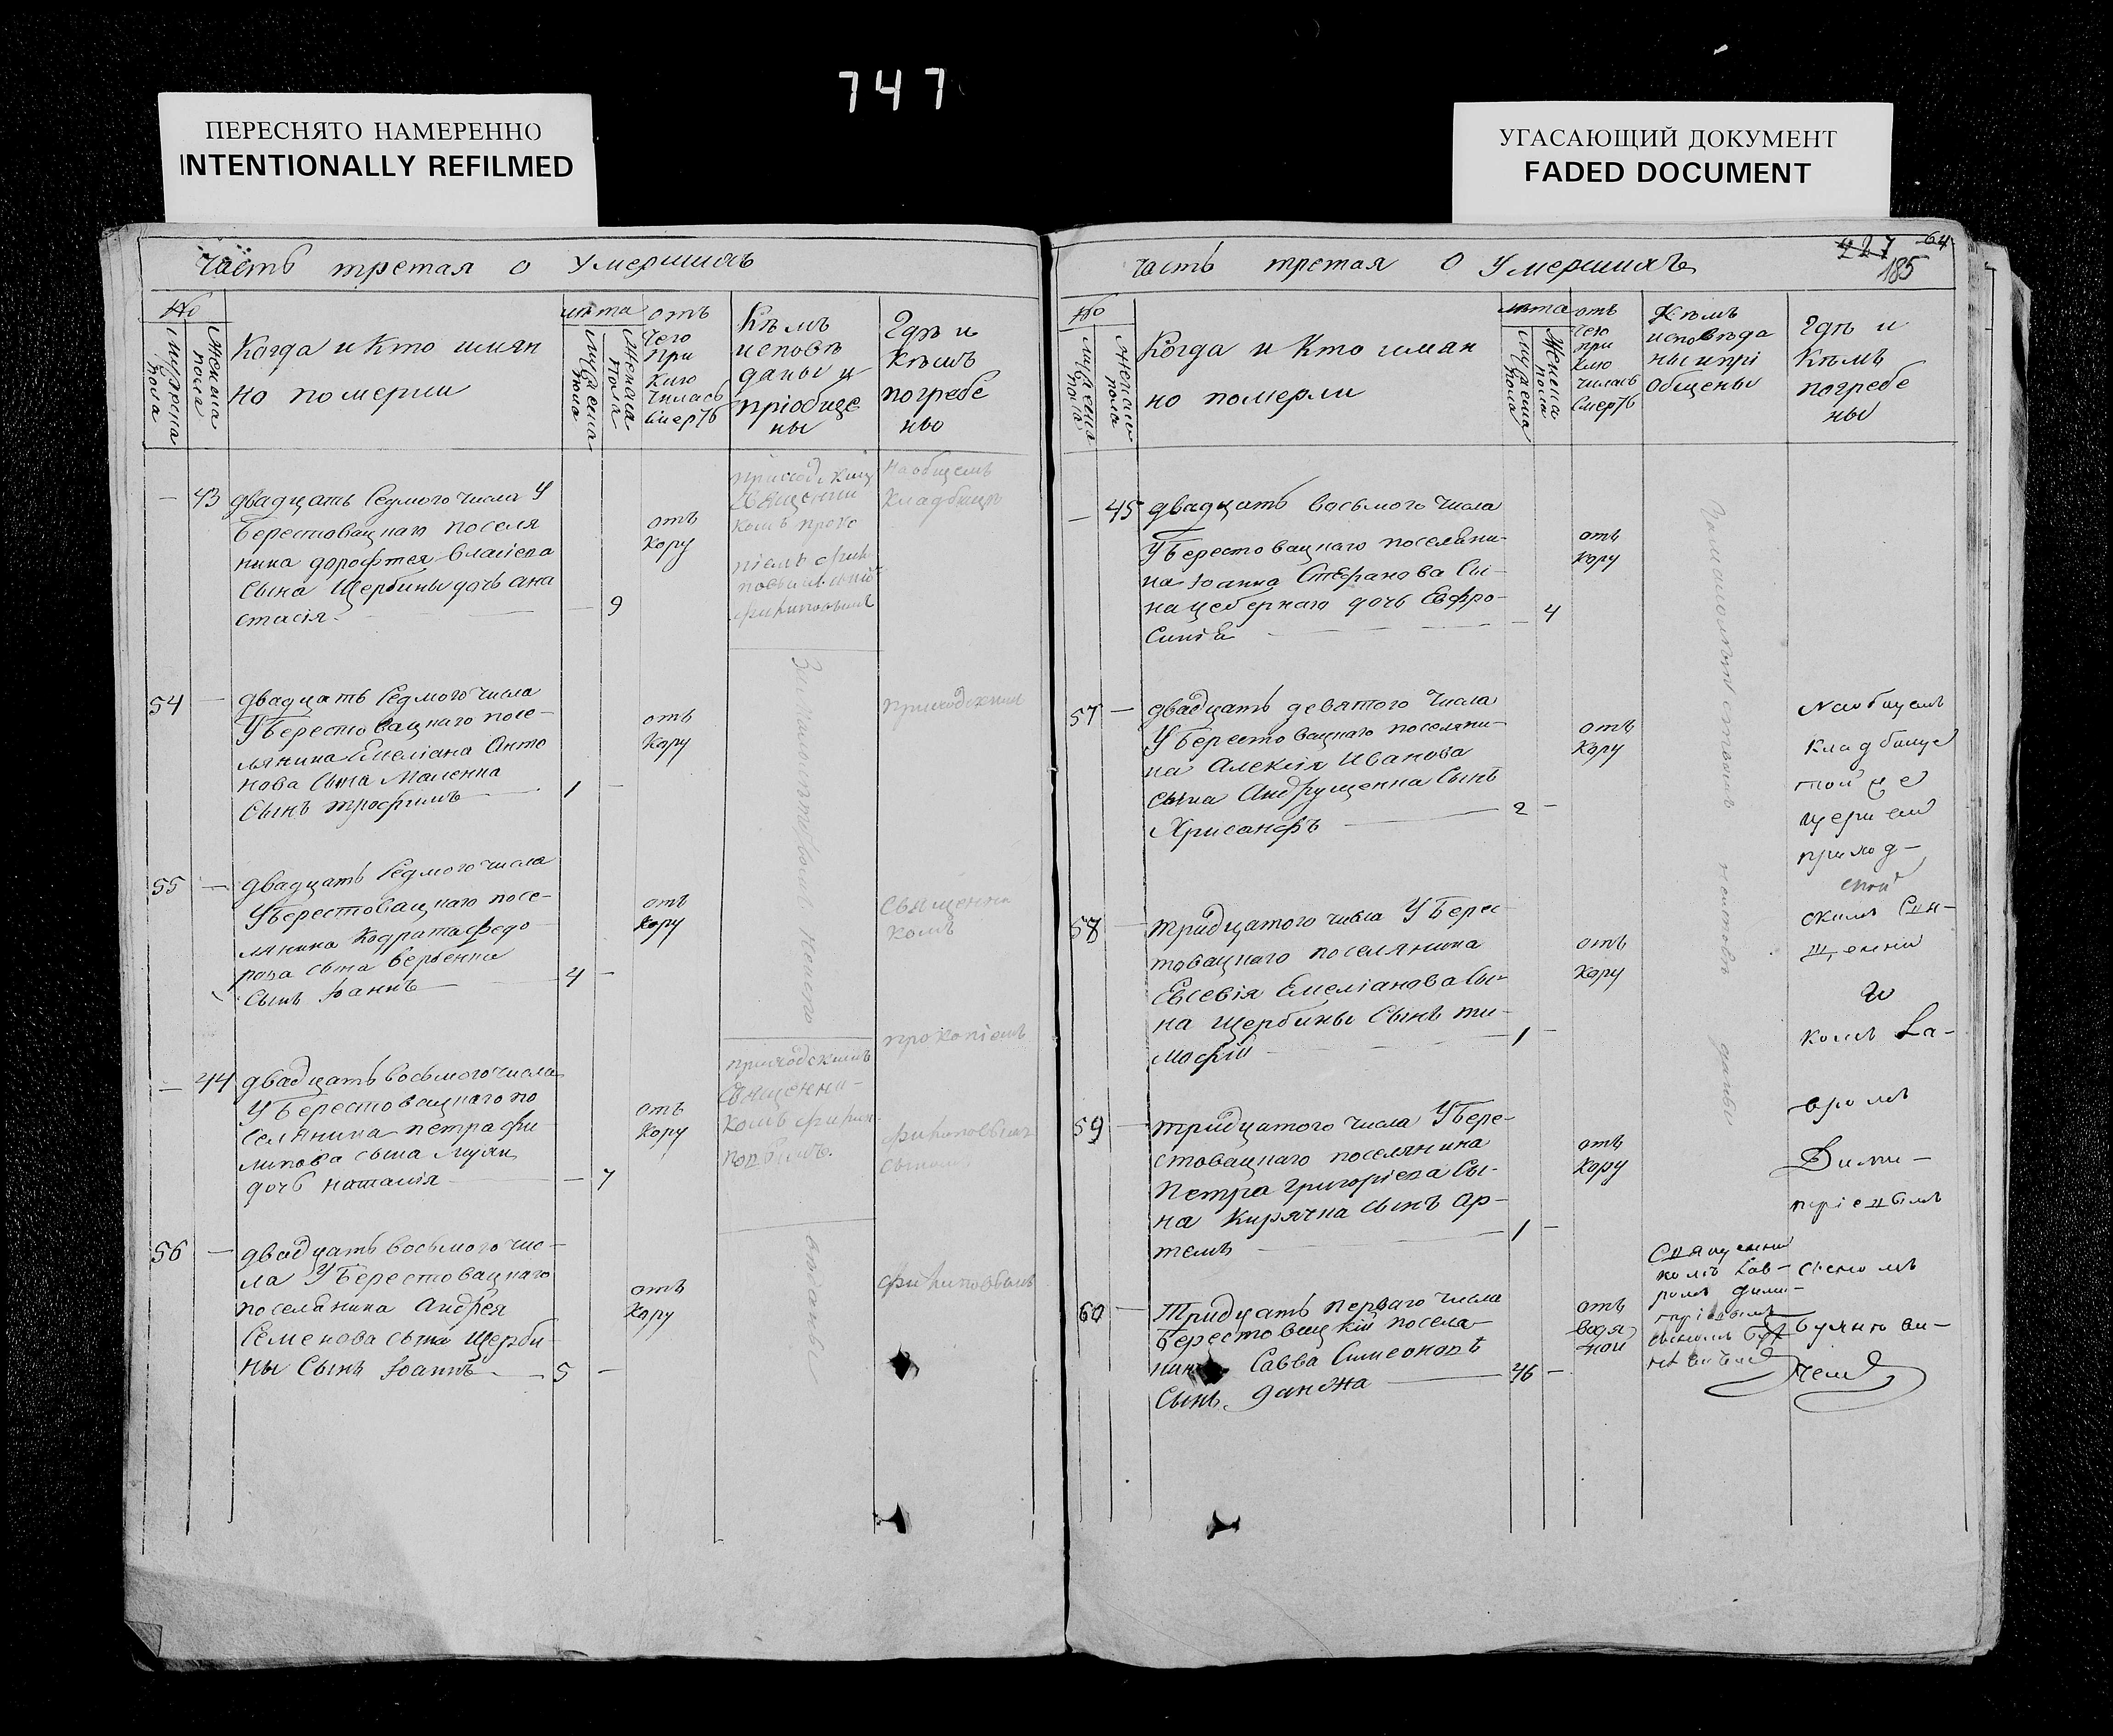 747
ПЕРЕСНЯТО НАМЕРЕННО
INTENTIONALLY REFILMED
УГАСАЮЩИЙ ДОКУМЕНТ
FADED DOCUMENT
часть третая о умершихъ
No
мужеска пола
женска пола
Когда и Кто имян
но померли
лѣта
мужеска пола
женска пола
отъ
чего
при
клю
чилась
смерть
Кѣмъ
исповѣ
даны и
пріобще
ны
Гдѣ и
кѣмъ
погребе
ны
— 43 двадцать седмого числа У
Берестовацкаго поселя
нина дорофтея власіева
сына Щербины дочь ана
стасія — 9
отъ
кору
приходскимъ
священни
комъ проко
піемъ
филиповымъ
на общемъ
кладбищѣ
54 — двадцать седмого числа
У Берестовацкаго посе-
лянина Емеліана Анто
нова сына Маленка
сынъ трофимъ 1 —
отъ
кору
приходскимъ
55 — двадцать седмого числа
У Берестовацкаго посе-
лянина Кодрата федо
рова сына вербенка
сынъ Іоаннъ 4 —
отъ
кору
священни
комъ
За малолетством
— 44 двадцать восьмого числа
У Берестовацкаго по
селянина петра фи
липова сына
дочь наталія — 7
отъ
кору
приходскимъ
священни-
комъ филип
повымъ.
прокопіемъ
филиповымъ
сыномъ
56 — двадцать восьмого чис-
ла У Берестовацкаго
поселянина Андрея
Семенова сына Щерби-
ны сынъ Іоаннъ 5 —
отъ
кору
филиповымъ
часть третая о умершихъ
227 64
185
No
мужеска пола
женска пола
Когда и Кто имян
но померли
лѣта
мужеска пола
женска пола
отъ
чего
при
клю
чилась
смерть
Кѣмъ
исповѣда
ны и прі
общены
Гдѣ и
Кѣмъ
погребе
ны
— 45 двадцать восьмого числа
У берестовацкаго поселяни-
на Іоанна Стефанова сы-
на цебернаго дочь Евфро-
синія — 4
отъ
кору
57 — двадцать девятого числа
У Берестовацкаго поселяни-
на Алексія Иванова
сына Андрущенка сынъ
Хрисанфъ 2 —
отъ
кору
на общемъ
кладбище
той же
церкви
приход-
58 — тридцатого числа У Берес-
товацкаго поселянина
Евсевія Емеліанова сы-
на Щербины сынъ ти-
мофій 1 —
отъ
кору
скимъ свя-
щенни
комъ Ла-
59 — тридцатого числа У бере-
стовацкаго поселянина
Петра Григоріева сы-
на Кирячка сынъ Ар-
темъ 1 —
отъ
кору
вромъ
Дими-
тріевымъ
60 — Тридцать перваго числа
Берестовацкій поселя-
нинъ Савва Симеоновъ
сынъ 46 —
отъ
водя
ной
Священни
комъ Лав-
ромъ дими-
тріевымъ
сыномъ
сыномъ